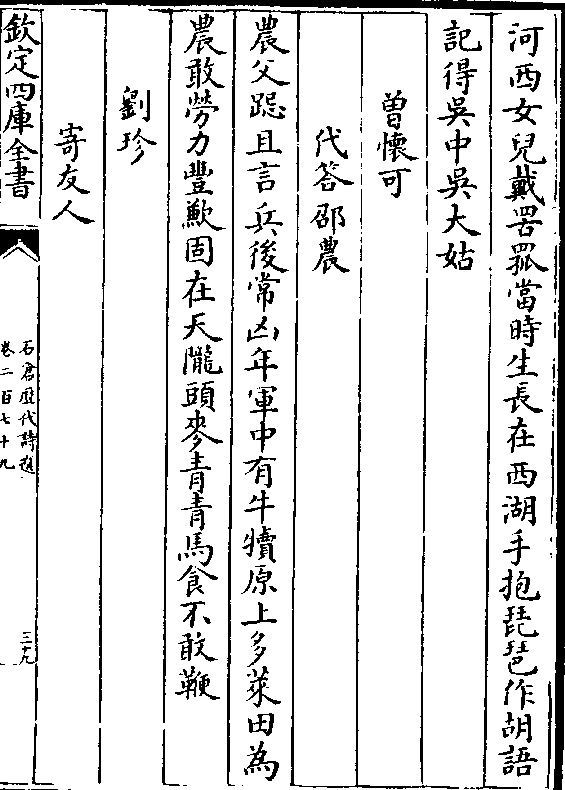 河西女兒戴罟罛當時生長在西湖手抱琵琶作胡語
記得吳中吳大姑
曾懷可
代答邵農
農父跽且言兵後常凶年軍中有牛犢原上多萊田為
農敢勞力豐歉固在天隴頭麥青青馬食不敢鞭
劉珍
寄友人
欽定四庫全書
石倉歷代詩選
卷二百七十九
三十九